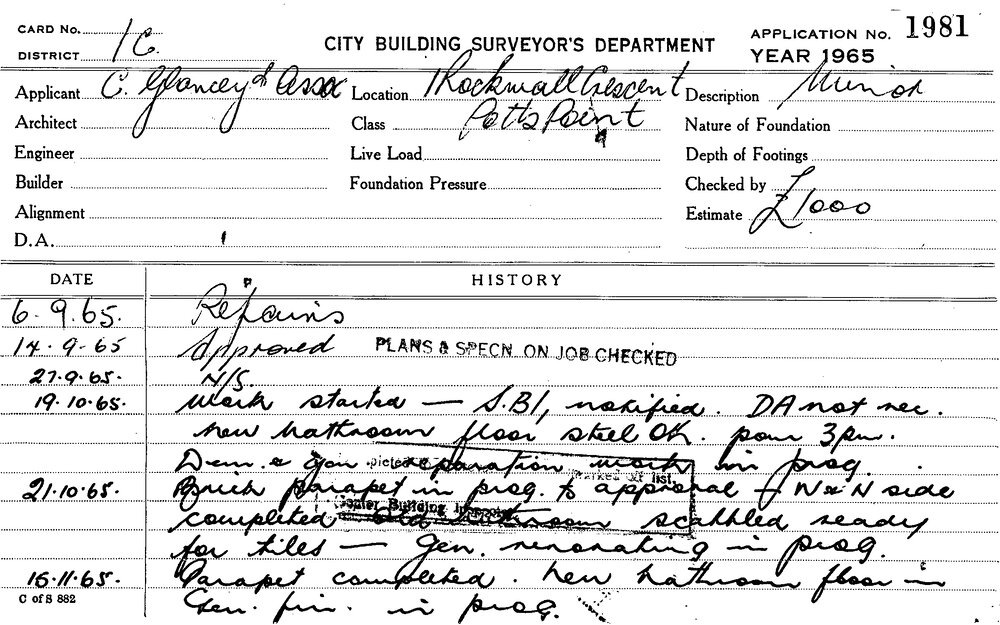 CARD No. 1C.
DISTRICT
CITY BUILDING SURVEYOR'S DEPARTMENT
APPLICATION No. 1981
YEAR 1965
Applicant C. Glancey & Assoc Location 1 Rockwall Crescent Description Minor
Architect Class Potts Point Nature of Foundation
Engineer Live Load Depth of Footings
Builder Foundation Pressure Checked by
Alignment Estimate £1000
D.A.
DATE HISTORY
6.9.65. Repairs
14.9.65 Approved PLANS & SPECN ON JOB CHECKED
27.9.65. N/S.
19.10.65. Work started — S.B.I, notified. DA not nec.
New bathroom floor steel OK. pour 3pm.
Dem. & gen. preparation work in prog.
21.10.65. Brick parapet in prog. to approval — W & N side
completed Old bathroom scabbled ready
for tiles — Gen. renovating in prog.
16.11.65. Parapet completed. New bathroom floor in
Gen. fin. in prog.
Building
list
C of S 882